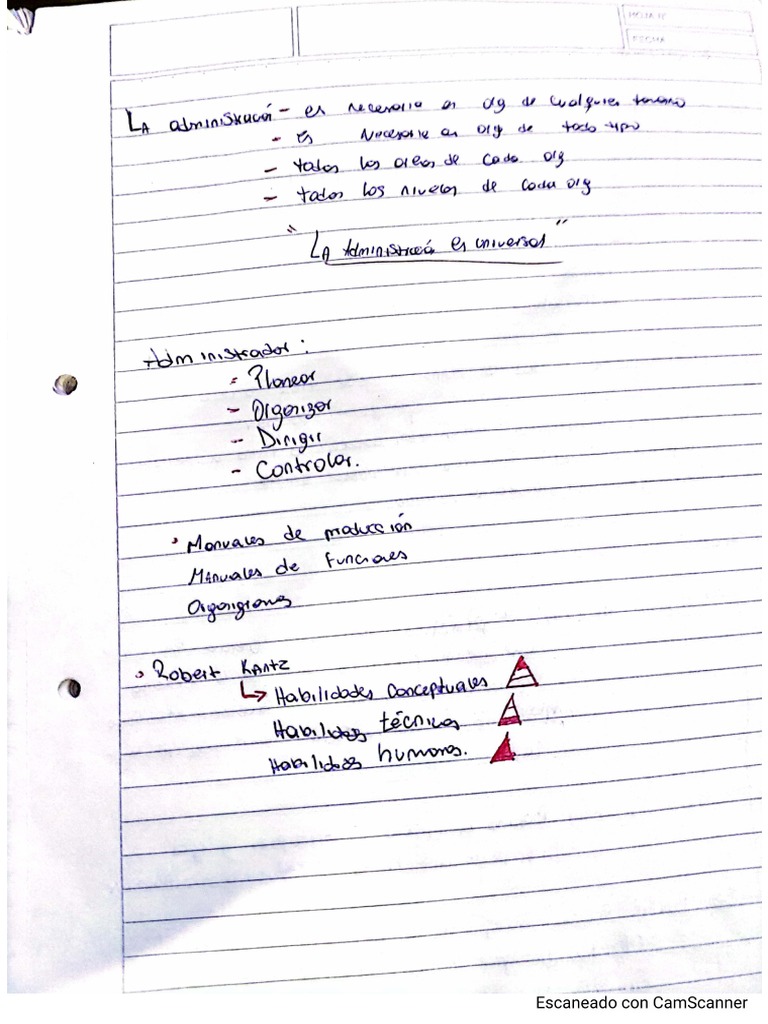 HOJA Nº
FECHA
LA administració - es necesaria en org de cualquier tamaño
- es necesaria en org de todo tipo
- todas las areas de cada org
- todos los niveles de cada org
"LA Administració es universal"
Administrador:
- Planear
- Organizar
- Dirigir
- Controlar.
• Manuales de producción
Manuales de funciones
Organigramas
• Robert Kantz
↳ Habilidades Conceptuales
Habilidades técnicas
Habilidades humanas.
Escaneado con CamScanner